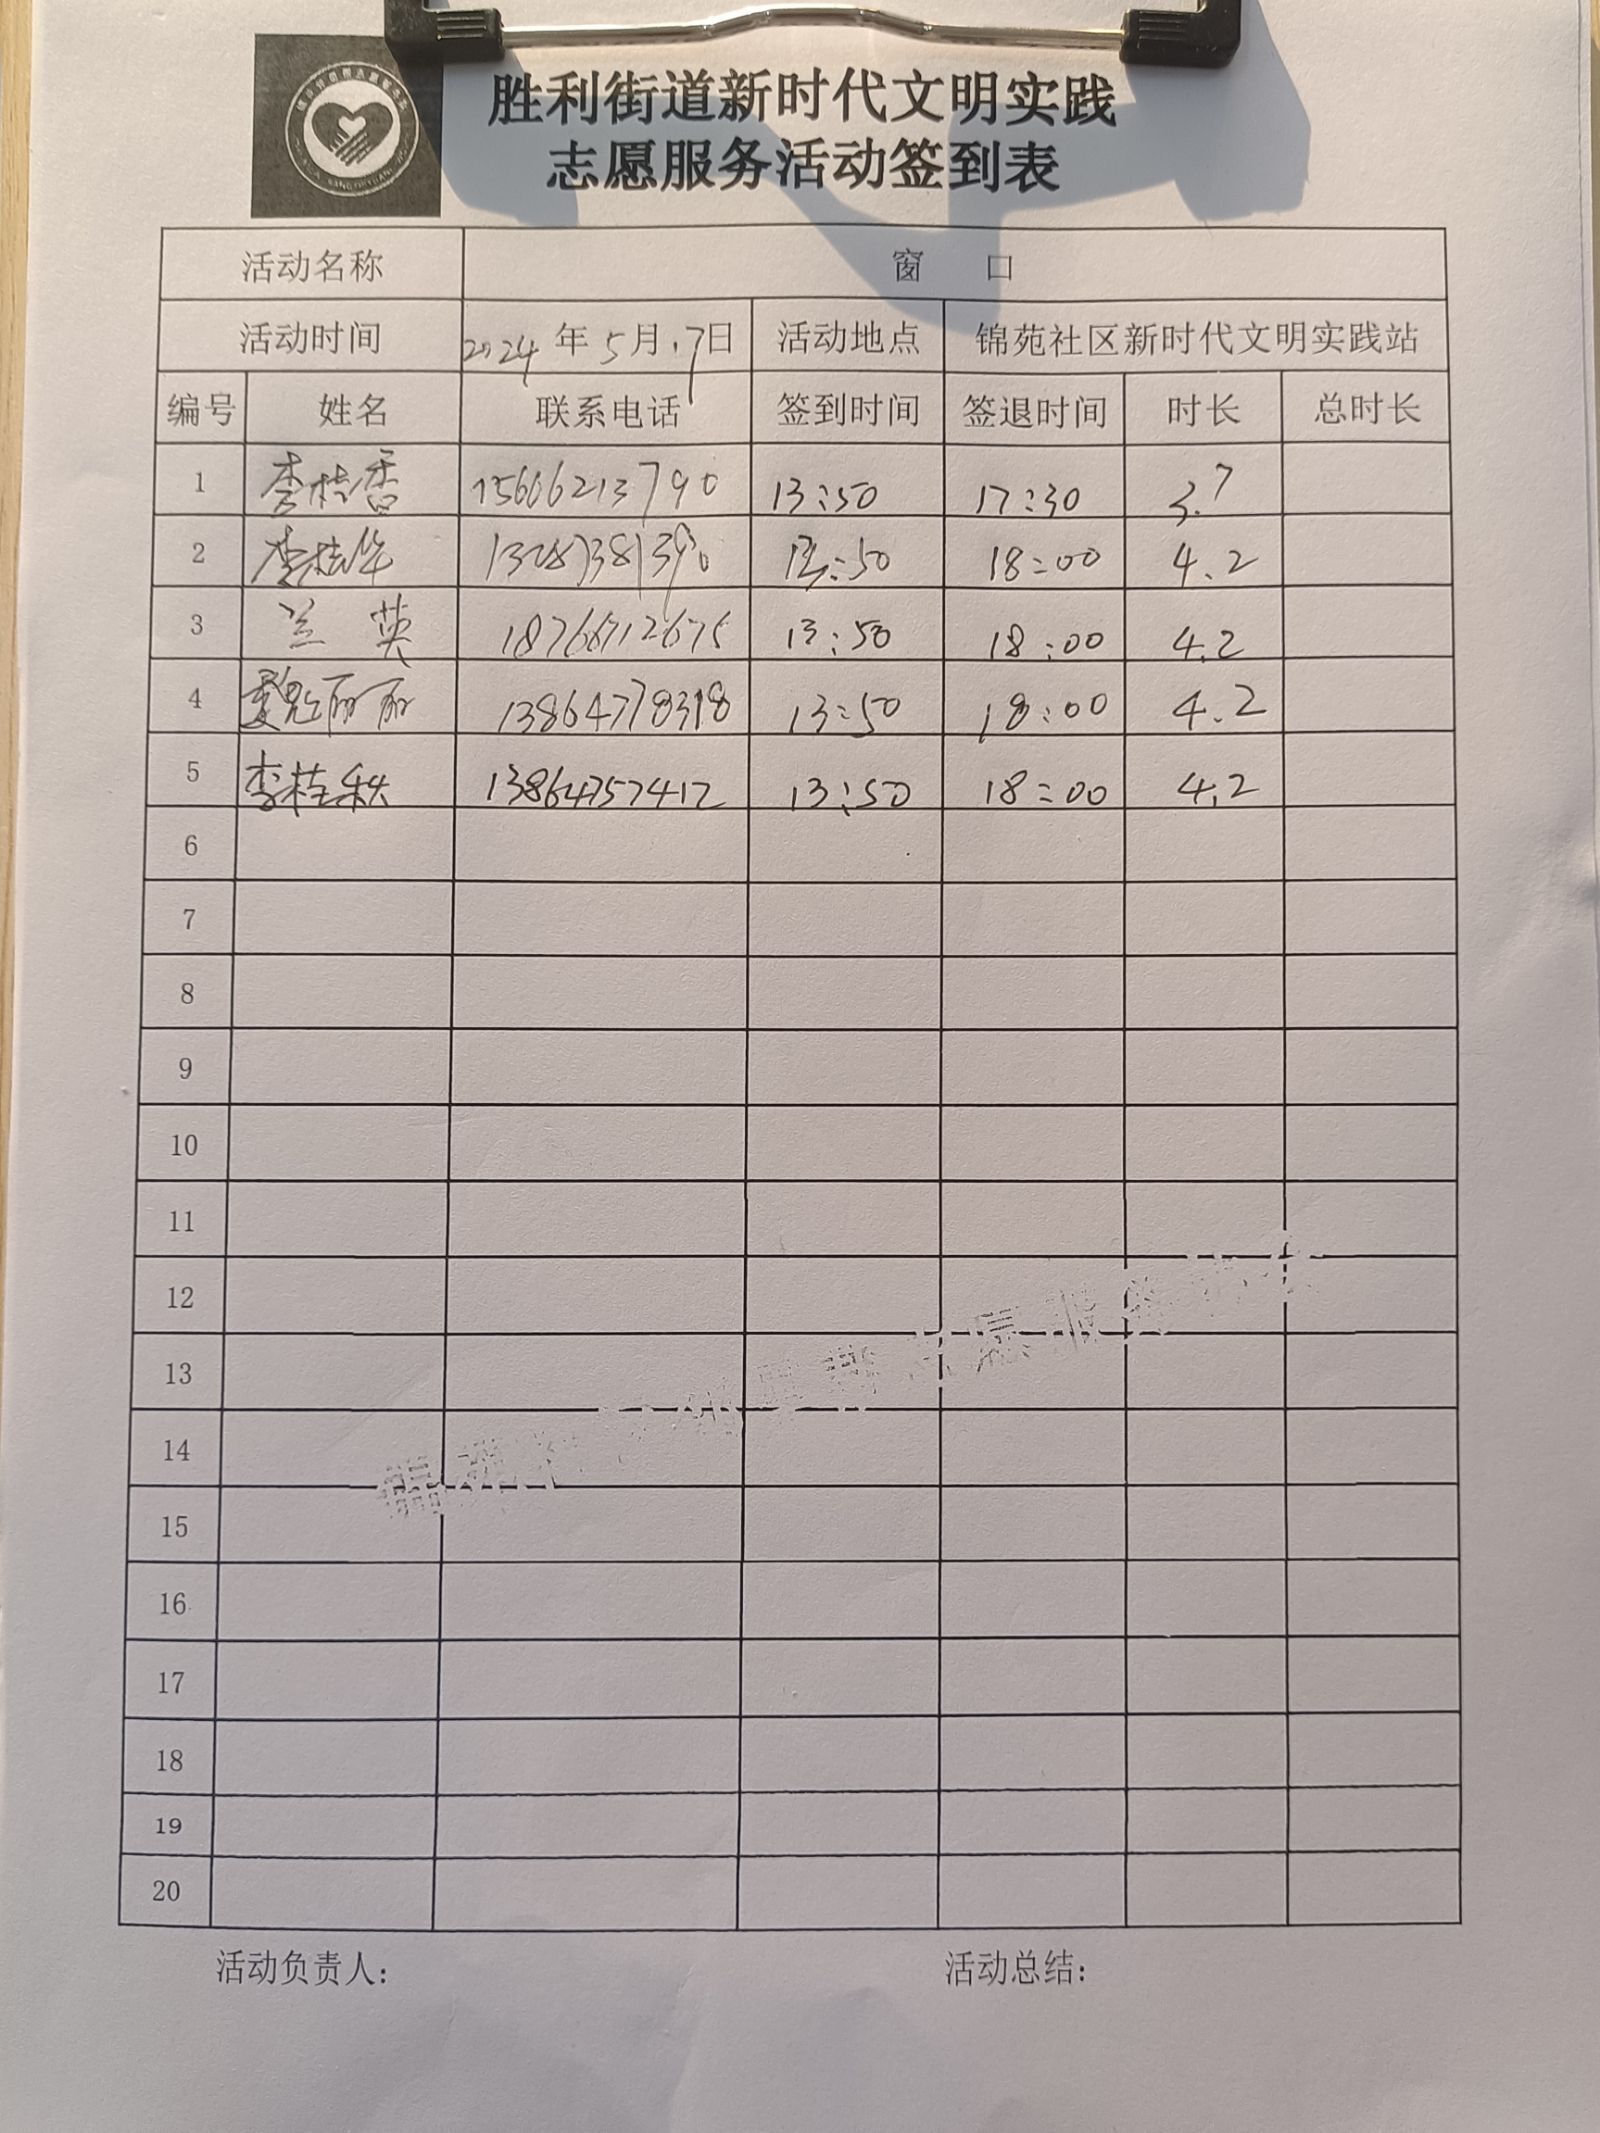 胜利街道新时代文明实践
志愿服务活动签到表
活动名称 窗 口
活动时间 2024年5月17日 活动地点 锦苑社区新时代文明实践站
编号 姓名 联系电话 签到时间 签退时间 时长 总时长
1 李桂香 15606213790 13:50 17:30 3.7
2 李桂华 13:50 18:00 4.2
3 兰英 18766712675 13:50 18:00 4.2
4 魏丽丽 13864778318 13:50 18:00 4.2
5 李桂秋 13864757412 13:50 18:00 4.2
6
7
8
9
10
11
12
13
14
15
16
17
18
19
20
活动负责人: 活动总结: